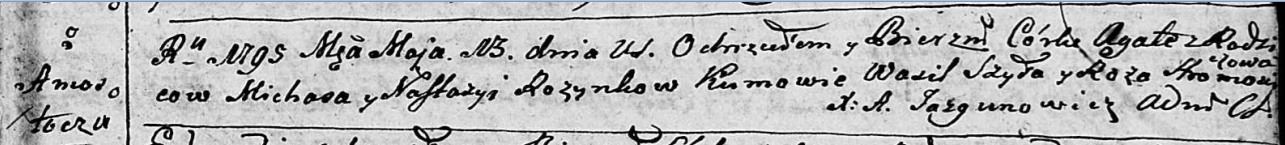 Amoso
łoczu
Rᵘ 1795 Msã Maja. 13. dnia Us. Ochrzciłem y Bierzm̃ Córke Agate z Rodzi
cow Michasa y Nastazyi Rozynkow Kumowie Wasil Szyła y Roza
X: A. Jazgunowicz Adm̃